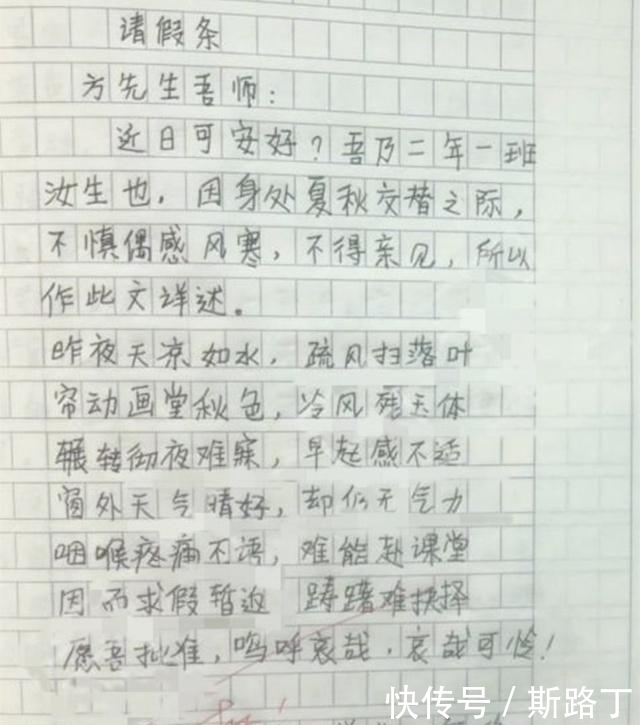 请假条
方先生吾师：
近日可安好？吾乃二年一班
汝生也，因身处夏秋交替之际，
不慎偶感风寒，不得亲见，所以
作此文详述。
昨夜天凉如水，疏风扫落叶
帘动画堂秋色，冷风残玉体
辗转彻夜难寐，早起感不适
窗外天气晴好，却似无气力
咽喉疼痛不语，难能赴课堂
因而求假暂返 踌躇难抉择
愿吾批准，呜呼哀哉，哀哉可怜！
快传号／斯路丁